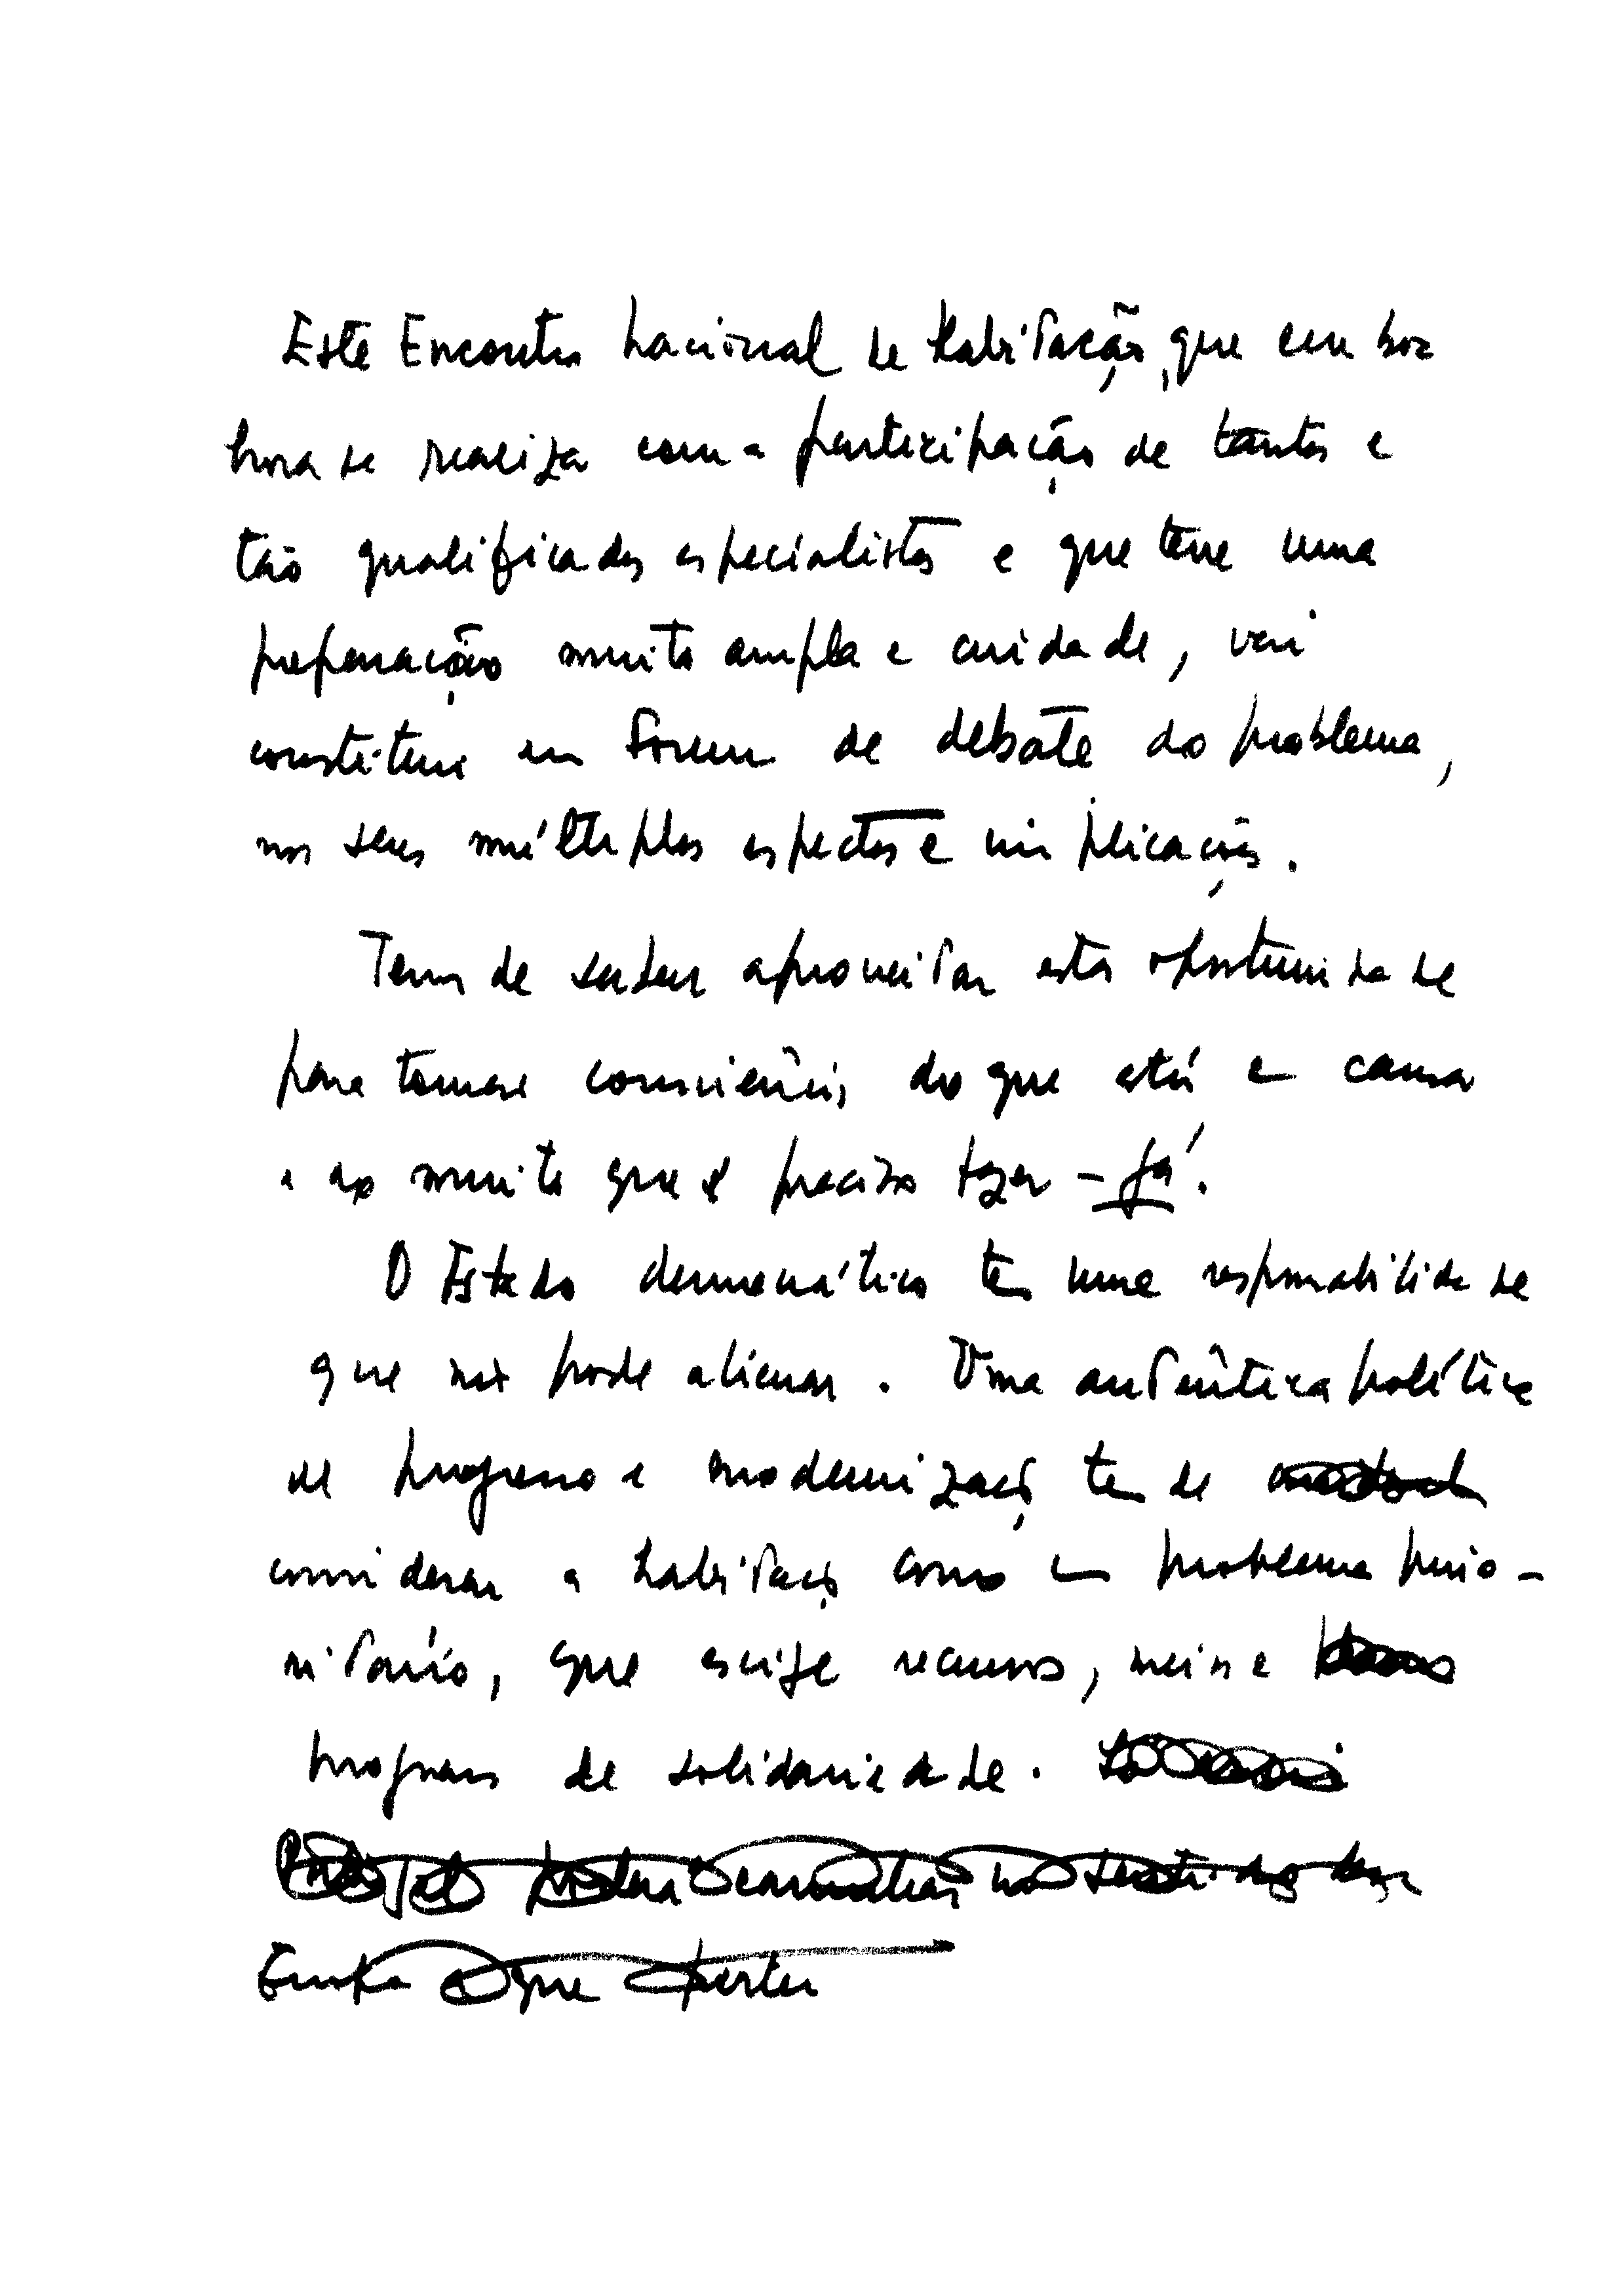 Este Encontro Nacional de Habitação, que em boa
hora se realiza com a participação de tantos e
tão qualificados especialistas e que teve uma
preparação muito ampla e cuidada, vai
constituir um forum de debate do problema,
nos seus múltiplos aspectos e implicações.
Temos de saber aproveitar esta oportunidade
para tomar consciência do que está em causa
e ao muito que é preciso fazer - já.
O Estado democrático tem uma responsabilidade
que não pode alienar. Uma autêntica política
de progresso e modernização tem de
considerar a habitação como um problema prio-
ritário, que exige recursos, meios e
programas de solidariedade.
no sentido de
que